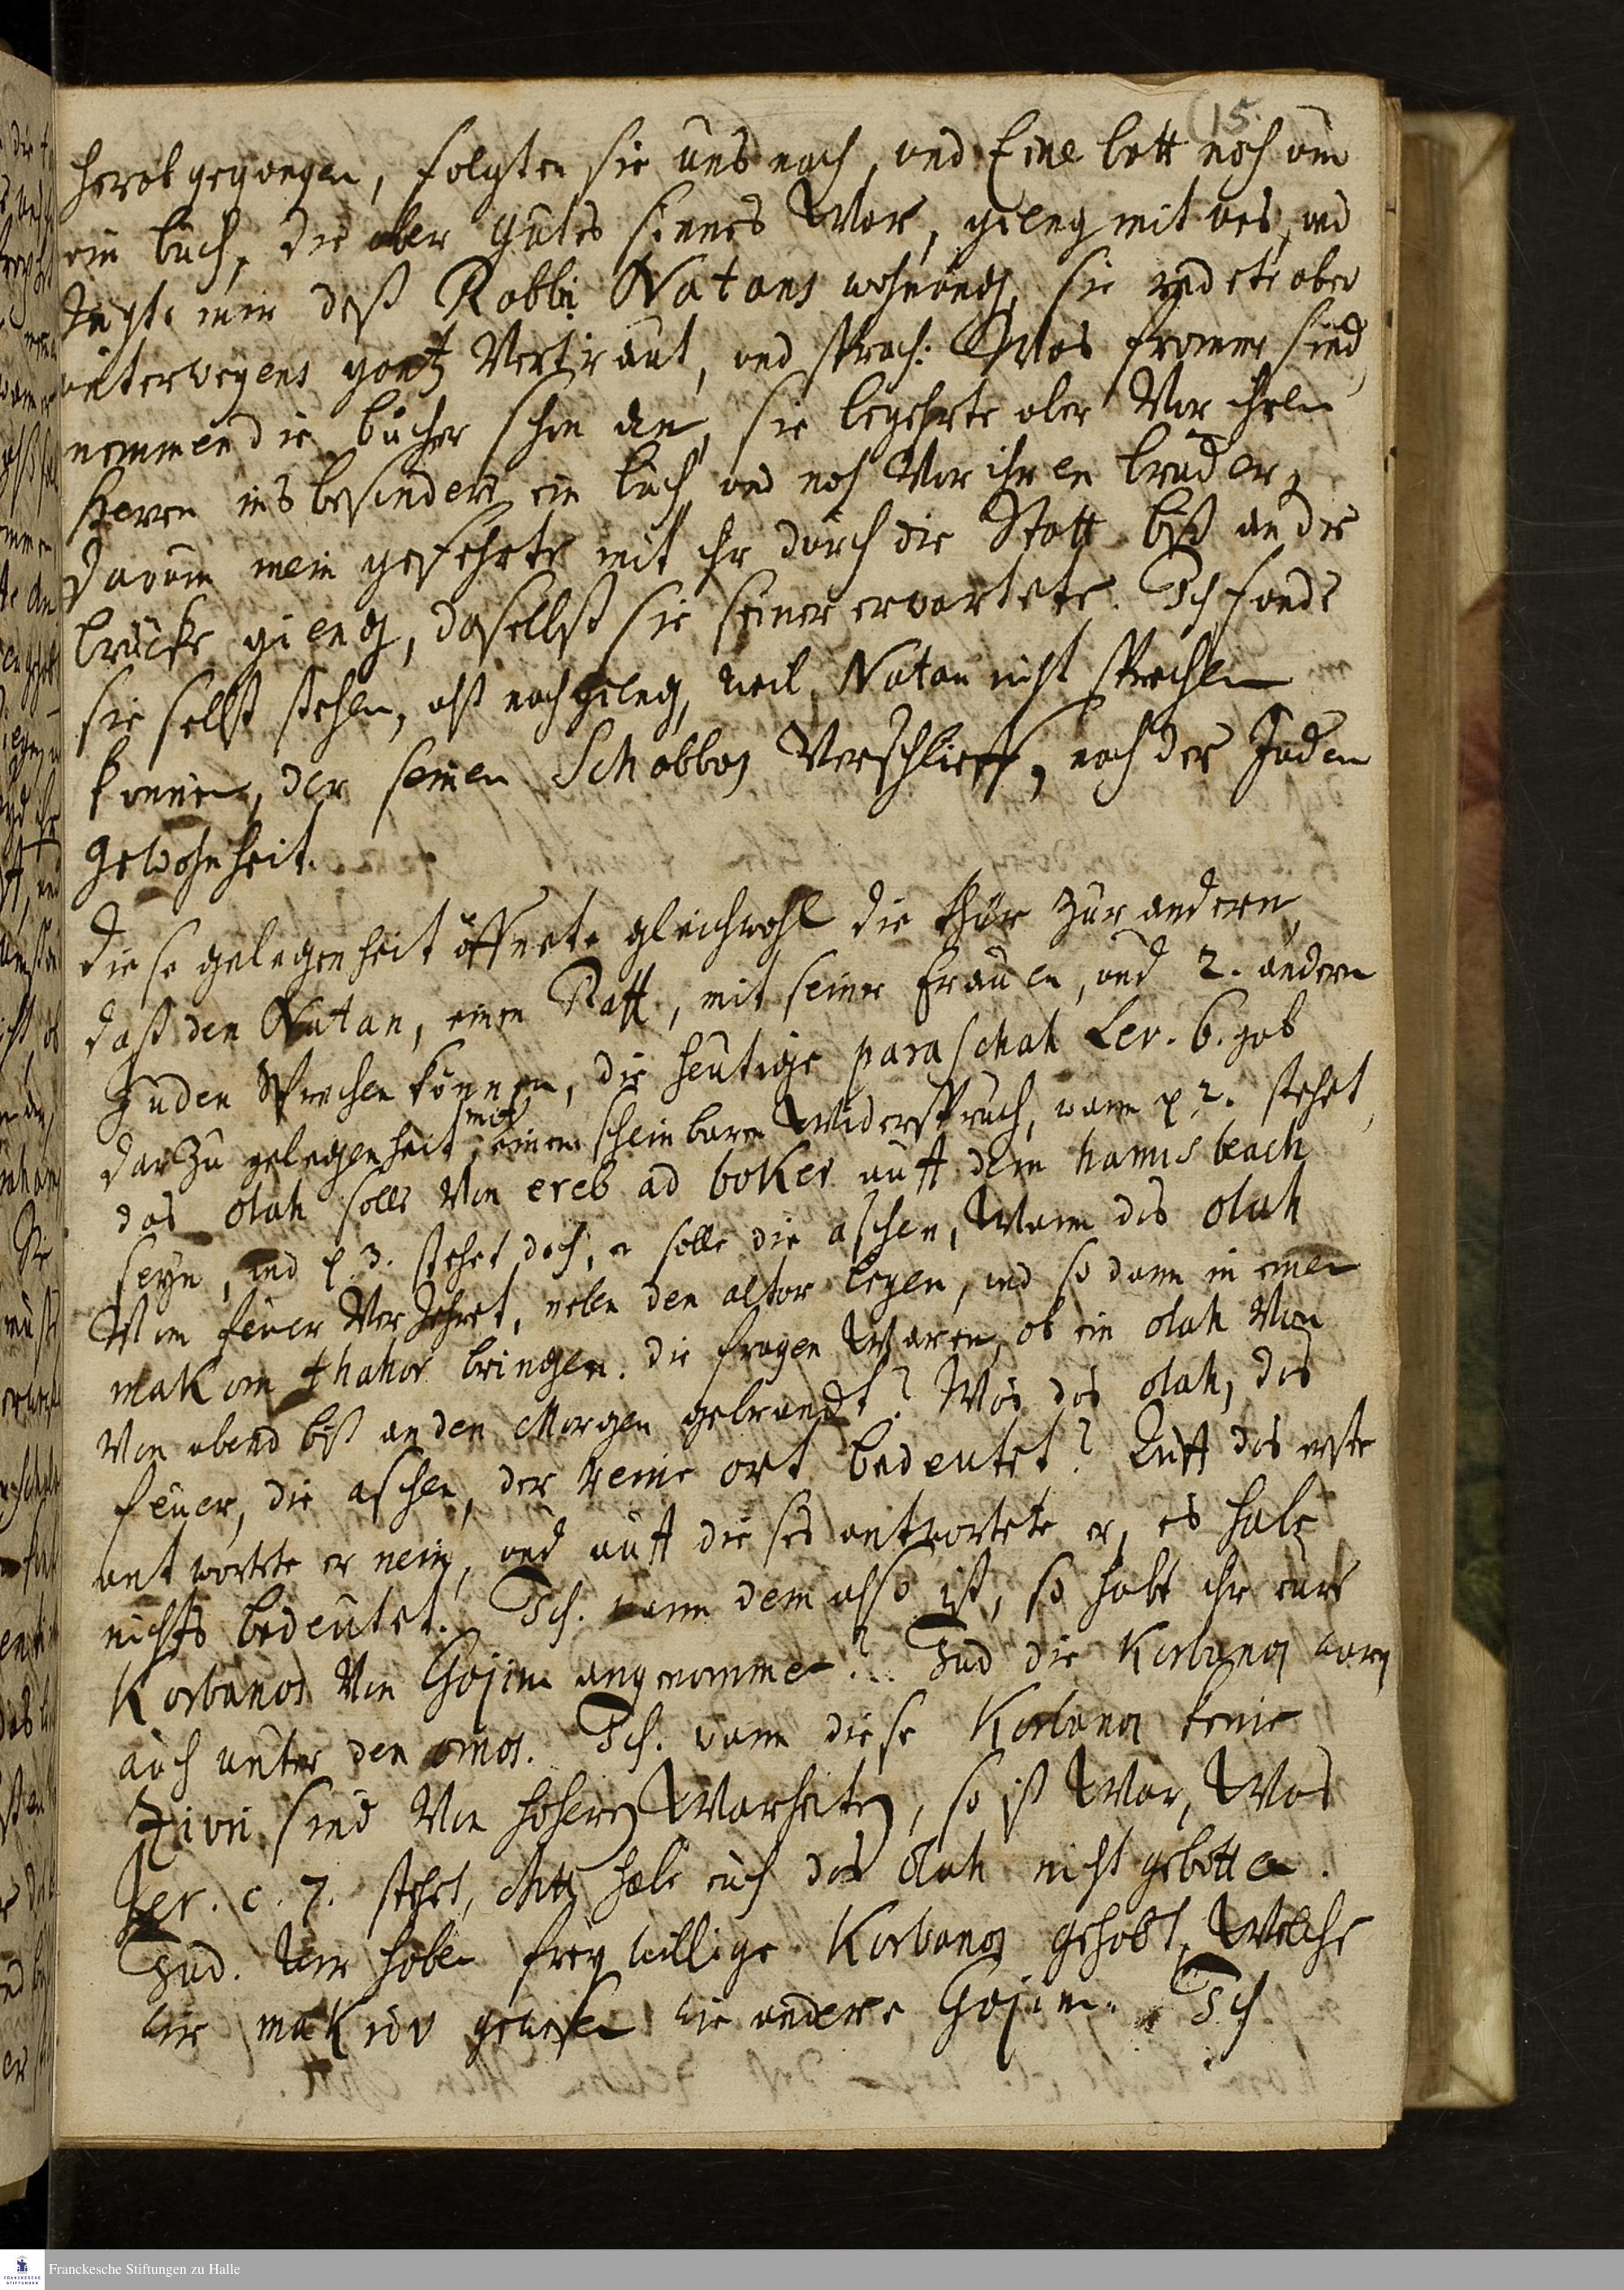 (15.
herab gegangen, folgten sie uns nach, und Eine batt noch um
ein buch, die aber gutes sinnes War, gieng mit uns, und
Zeigte mir deß Rabbi Natans wohnung, sie redete aber
unterwegens gantz Vertraut, und sprach: Was fromme sind,
nemmen die bücher schon an, sie begehrte aber Vor ihren
Herren ins besondere ein buch, und noch Vor ihren bruder,
darum mein gefehrte mit ihr durch die Statt biß an die
brücke gieng, daselbst sie seiner erwartete. Ich fande
sie selbst stehen, alß nachgieng, weil Natan nicht sprechen
konnen, der seinen Schabbos Verschlieff, nach der Juden
Gewohnheit.
Diese gelegenheit öffnete gleichwohl die thür zur andern,
daß den Natan, einen Raff, mit seiner frauen, und 2. andern
Juden Sprechen können, die heutige paraschah Lev. 6. gab
darzu gelegenheit, mit einem scheinbaren Widerspruch, wann p. 2. stehet,
das olah solle Von ereb ad boker auff dem hamisbeach
seyn, und p. 3. stehet doch, er solle die aschen, Wann das olah
Vom feuer Verzehret, neben den altar legen, und so dann in einen
makom thahor bringen. die fragen Waren, ob ein olah Von
Von abend biß an den Morgen gebrandt? Was das olah, das
feuer, die aschen, der reine ort bedeutet? Auff das erste
antwortete er nein, und auff dieses antwortete er, es habe
nichts bedeutet. Ich. wann dem also ist, so habt ihr eure
Korbanos Von Gojim angenommen? Jud die Korbanos waren
auch unter den omos. Ich. wann diese Korbanos keine
Zivii sind Von hohern Warheiten, so ist War, Was
Jer. c. 7. stehet, Gott habe euch das olah nicht gebotten.
Jud. Wir haben freywillige Korbanos gehabt, Welche
wir makriv gewesen wie andere Gojim. Ich
Franckesche Stiftungen zu Halle